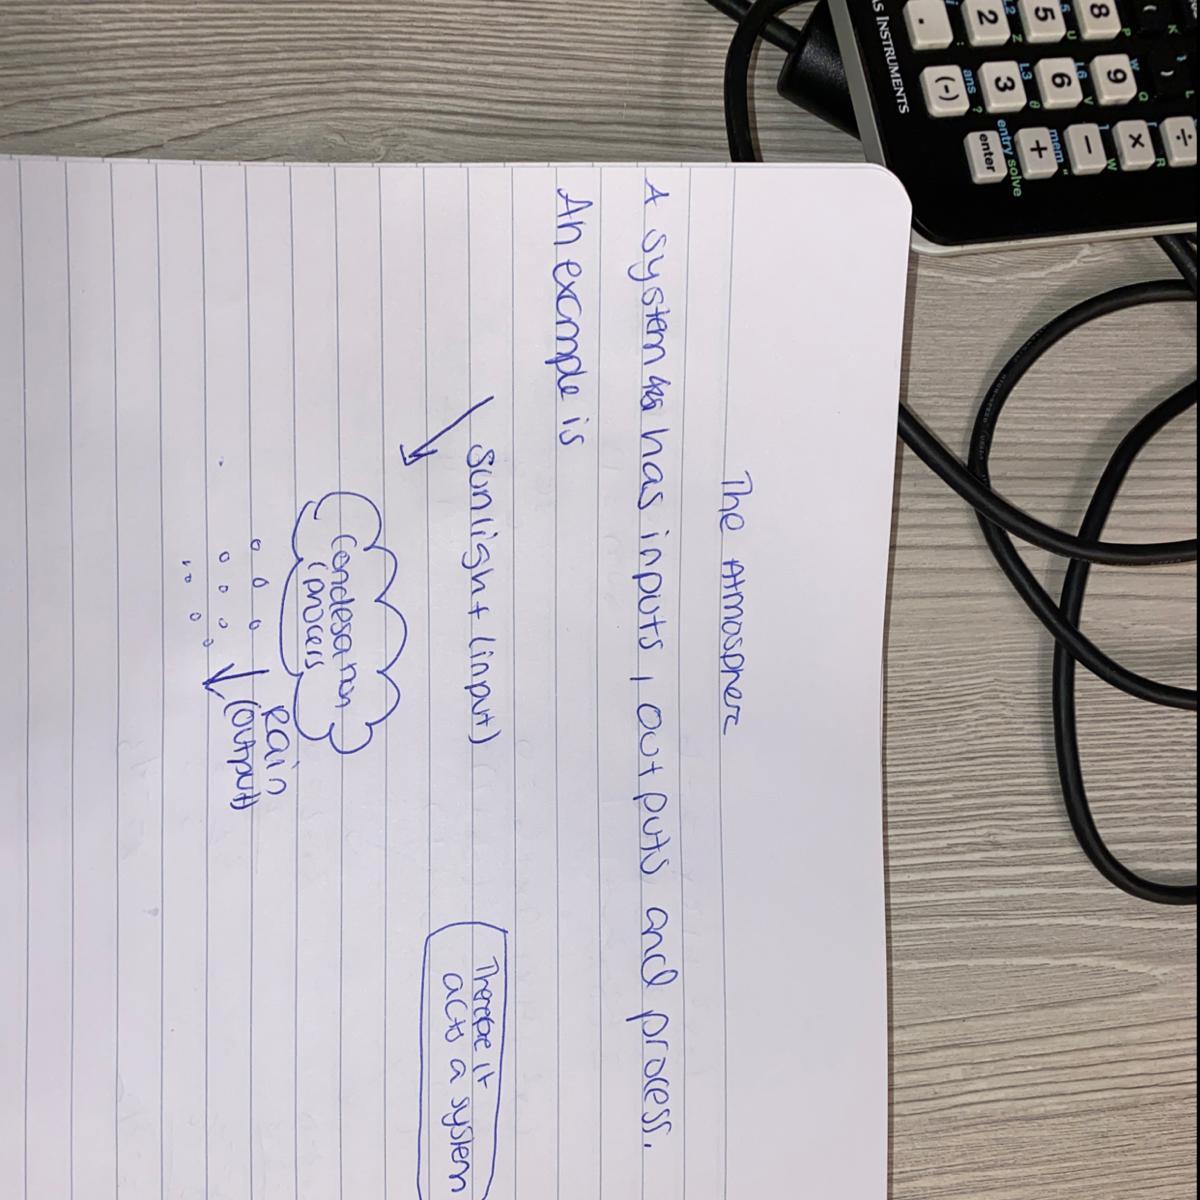 The Atmosphere
A system has has inputs, outputs and process.
An example is
Sunlight (input)
Condesation
(process
Rain
(output)
Therefore it
acts a system
AS INSTRUMENTS
.
2
5
8
(-)
3
6
9
enter
+
−
×
÷
ans
?
entry solve
mem
"
L2
Z
L3
θ
L6
V
W
Q
U
P
K
L
R
W
:
(
)